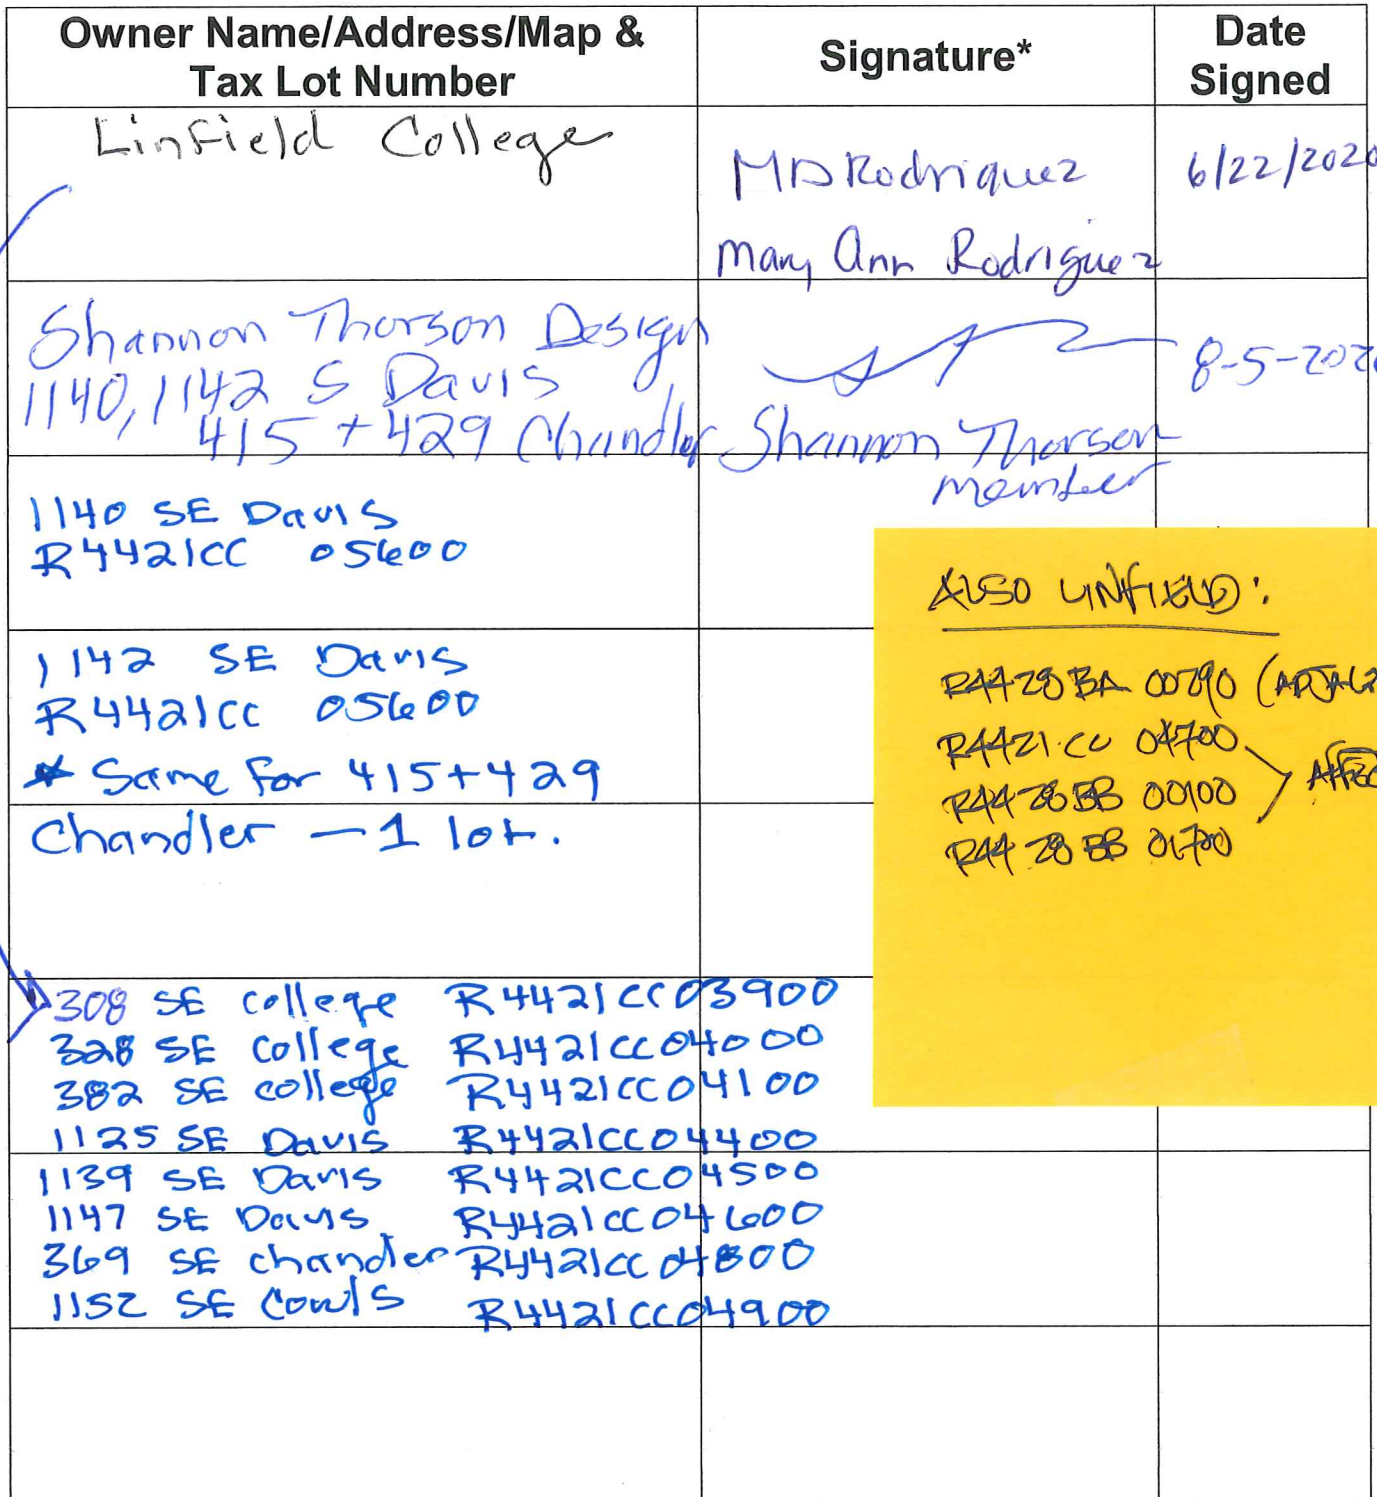 Owner Name/Address/Map &
Tax Lot Number
Signature*
Date
Signed
Linfield College
MDRodriguez
Mary Ann Rodriguez
6/22/2020
Shannon Thorson Design
1140, 1142 S Davis
415 + 429 Chandler
Shannon Thorson
member
8-5-2020
1140 SE Davis
R4421CC 05600
1142 SE Davis
R4421CC 05600
* Same for 415+429
Chandler - 1 lot.
308 SE college R4421CC03900
328 SE College R4421CC04000
382 SE college R4421CC04100
1125 SE Davis R4421CC04400
1139 SE Davis R4421CC04500
1147 SE Davis R4421CC04600
369 SE chandler R4421CC04800
1152 SE Cowls R4421CC04900
ALSO LINFIELD:
R4428BA
R4421CC 04700
R4428BB 00100
R4428BB 01700